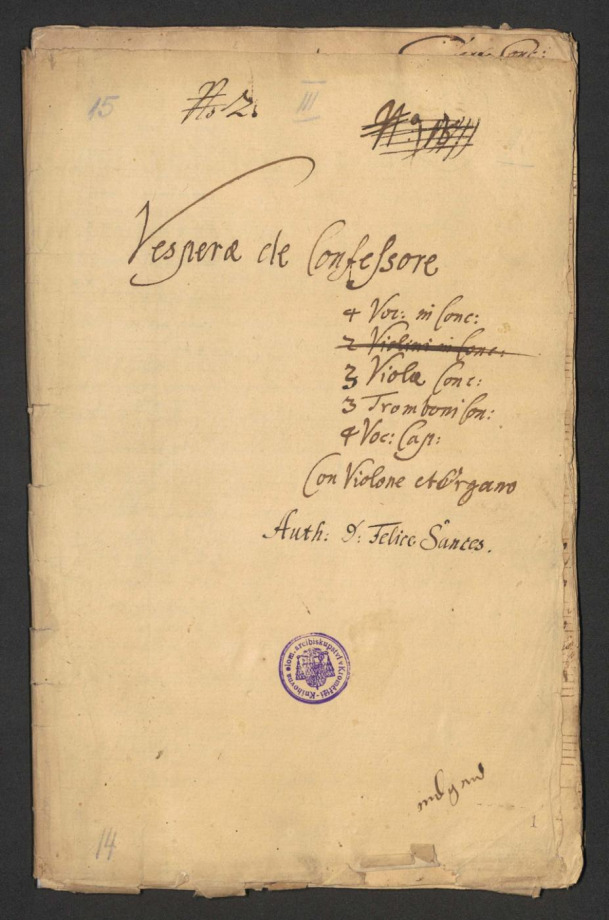 15
No 2.
III
Vesperæ de Confessore
4 Voc: in Conc:
2 Violini in Conc:
3 Violæ Conc:
3 Tromboni Con:
4 Voc: Cap:
Con Violone et Organo
Auth: D: Felice Sances.
Knihovna olom. arcibiskupství v Kroměříži
1
14